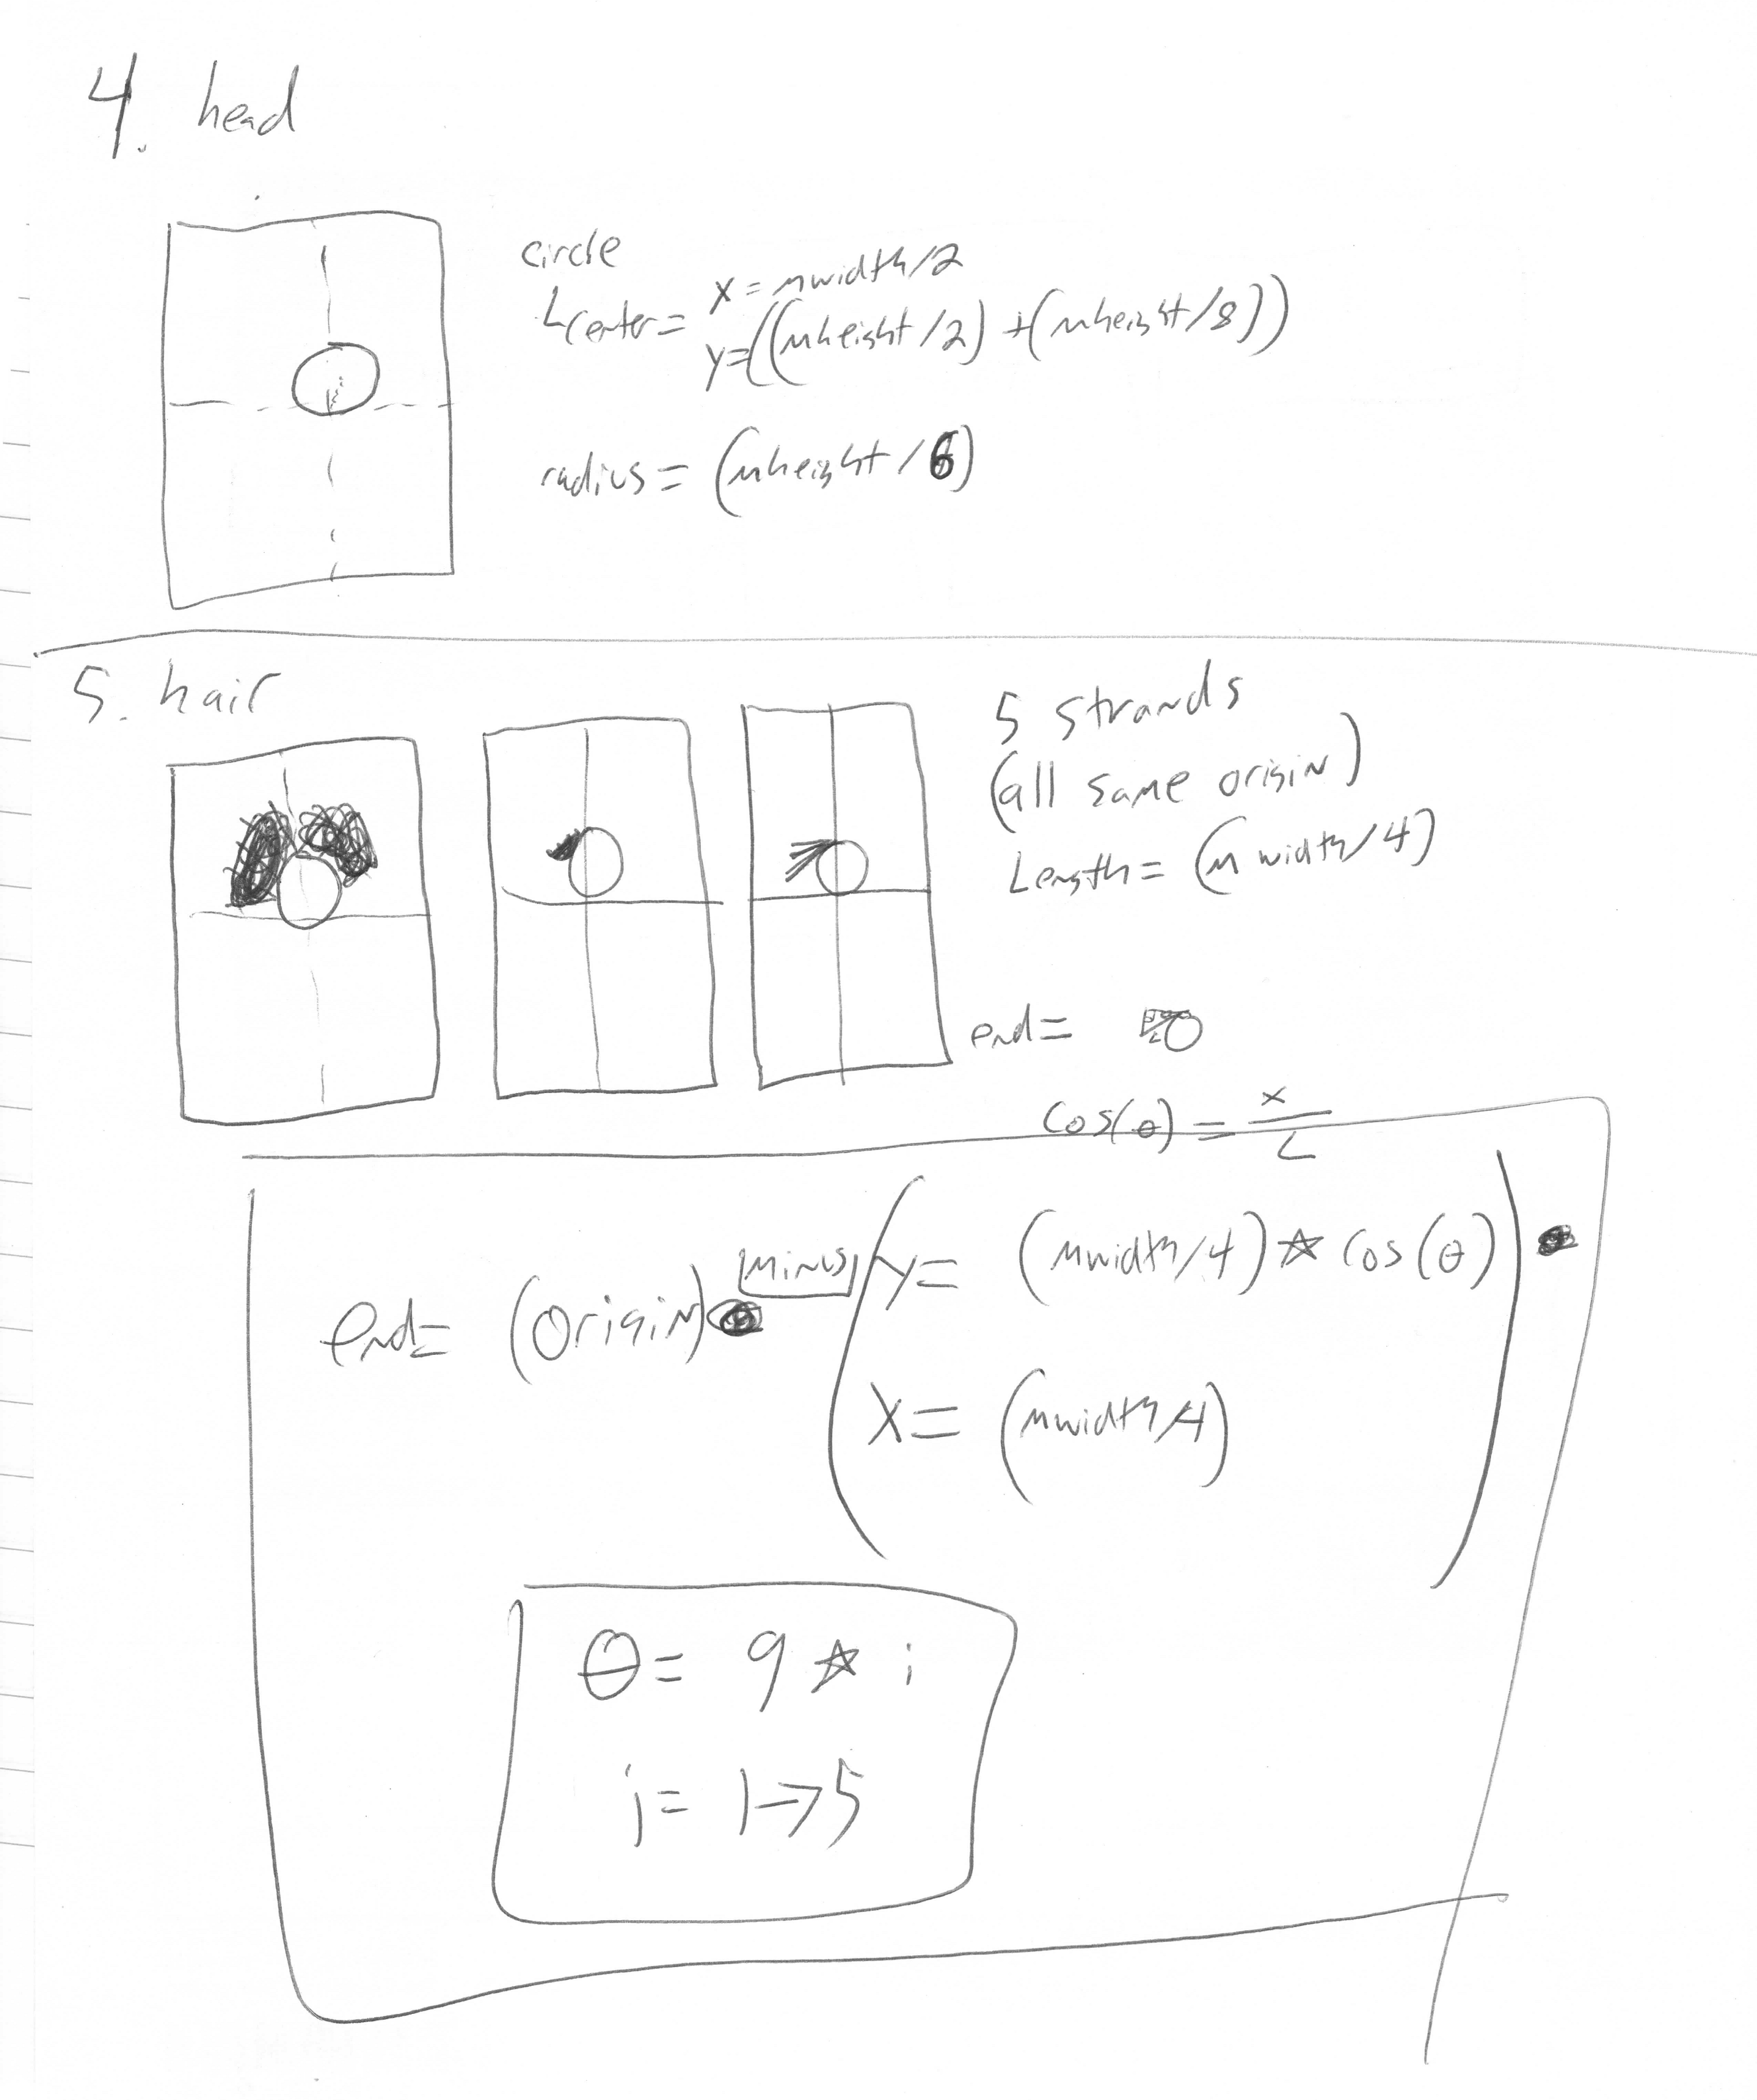 4. head
circle
Lcenter = x = mwidth/2
y=((mheight/2) +(mheight/8))
radius = (mheight/6)
5. hair
5 strands
(all same origin)
Length = (mwidth/4)
end =
cos(θ) = x/L
end= (origin) [minus] (y= (mwidth/4) * cos(θ))
x= (mwidth/4)
θ= 9 * i
i= 1→5